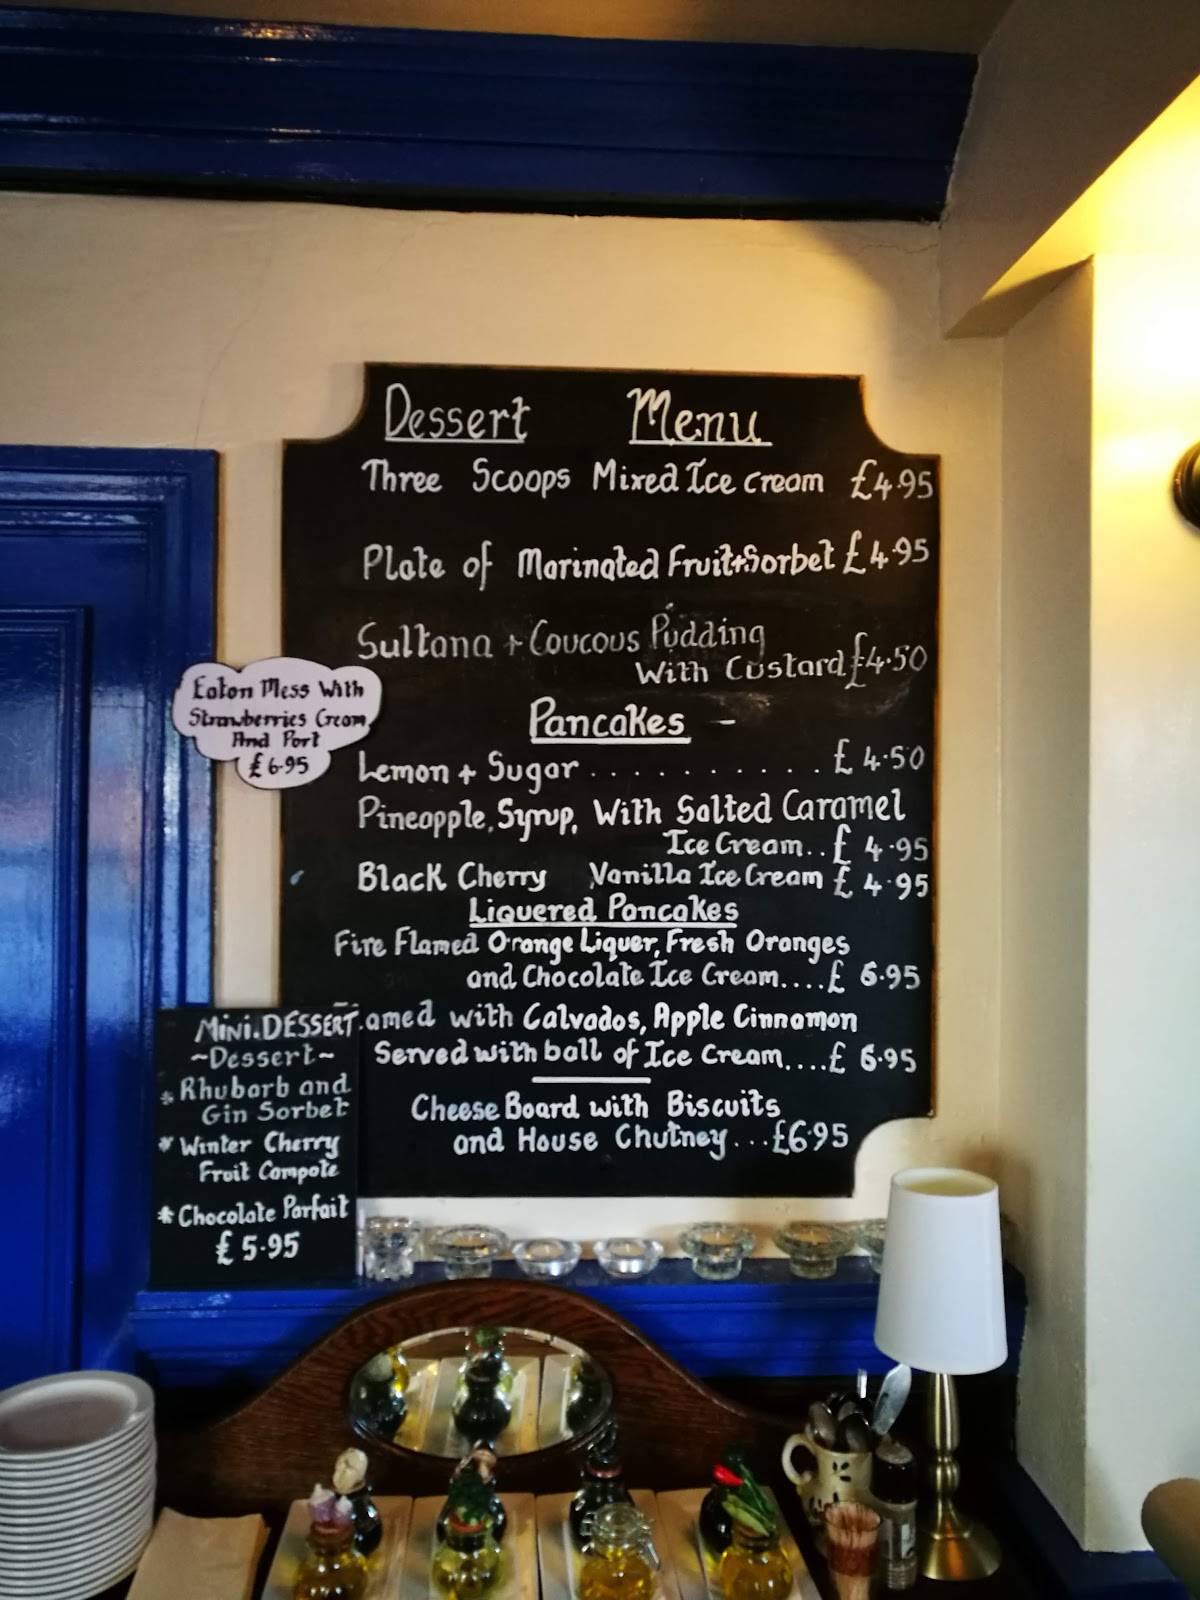 Dessert Menu
Three Scoops Mixed Ice cream £4.95
Plate of Marinated Fruit+Sorbet £4.95
Sultana + Coucous Pudding
With Custard £4.50
Pancakes -
Lemon + Sugar .......... £ 4.50
Pineapple, Syrup, With Salted Caramel
Ice Cream.. £ 4.95
Black Cherry Vanilla Ice Cream £ 4.95
Liquered Pancakes
Fire Flamed Orange Liquer, Fresh Oranges
and Chocolate Ice Cream....£ 6.95
with Calvados, Apple Cinnamon
Served with ball of Ice Cream....£ 6.95
Cheese Board with Biscuits
and House Chutney...£6.95
Eaton Mess With
Strawberries Cream,
And Port
£6.95
Mini.DESSERT
~Dessert~
* Rhubarb and
Gin Sorbet
* Winter Cherry
Fruit Compote
* Chocolate Parfait
£ 5.95